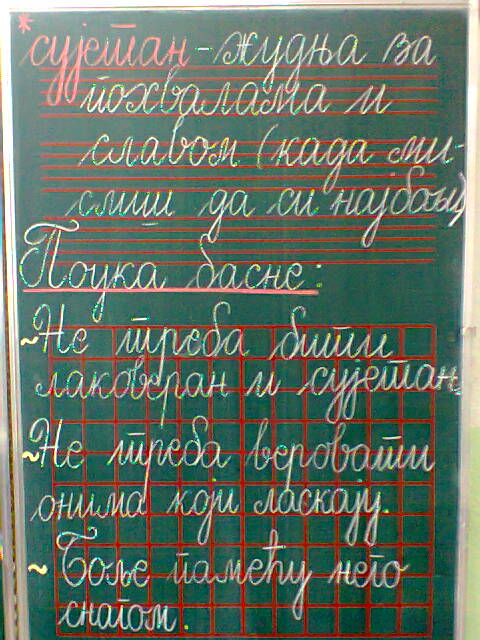 *сујетан - жудња за
похвалама и
славом (када ми-
слиш да си најбољи)
Поука басне:
~ Не треба бити
лаковеран и сујетан.
~ Не треба веровати
онима који ласкају.
~ Боље памећу него
снагом.